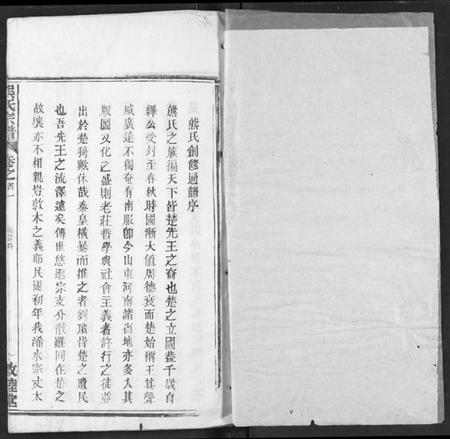 熊氏創修通譜序
熊氏之族徧天下皆楚先王之裔也楚之立國盖千歲自
繹公受封至春秋時國漸大値周德衰而楚始稱王其聲
威廣遠不獨奄有南服卽今山東河南諸省地亦多入其
版圖文化之盛則老莊哲學與社會主義者許行之徒並
出於楚猗歟休哉秦皇橫暴而推之者劉項皆楚之遺民
也吾先王之流澤遠矣傳世悠遠宗支分散雖同在楚之
故壤亦不相親豈敦本之義耶民國初年我浠水宗丈太
熊氏宗譜
卷之首一
敦睦堂